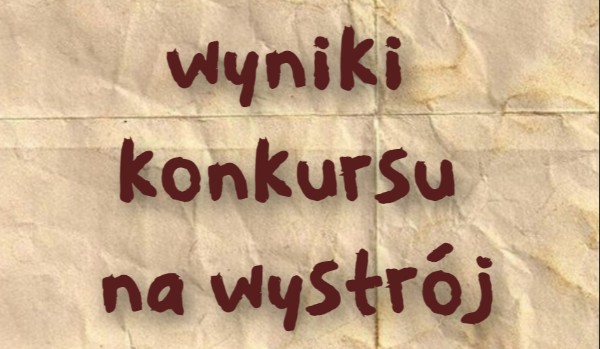 wyniki
konkursu
na wystrój